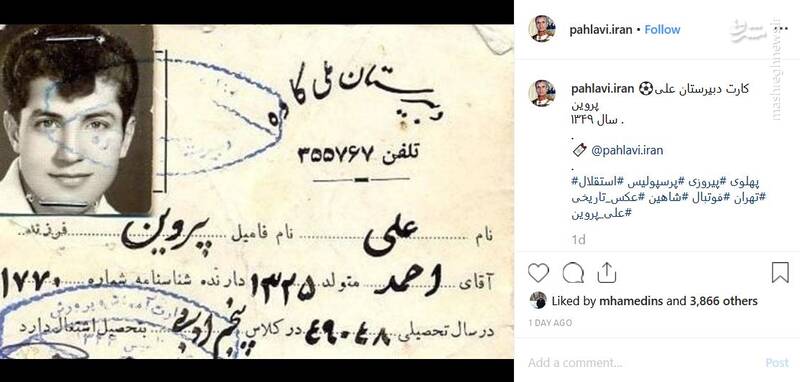 دبیرستان ملی کاوه
تلفن ۳۵۵۷۶۷
نام علی نام فامیل پروین فرزند
آقای احمد متولد ۱۳۲۵ دارنده شناسنامه شماره ۱۷۷۰
در سال تحصیلی ۴۸-۴۹ در کلاس پنجم ادبی بتحصیل اشتغال دارد
pahlavi.iran • Follow
pahlavi.iran کارت دبیرستان علی⚽
پروین
سال ۱۳۴۹ .
.
@pahlavi.iran
.
#پهلوی #پیروزی #پرسپولیس #استقلال
#تهران #فوتبال #شاهین #عکس_تاریخی
#علی_پروین
1d
Liked by mhamedins and 3,866 others
1 DAY AGO
Add a comment... Post
mashreghnews.ir